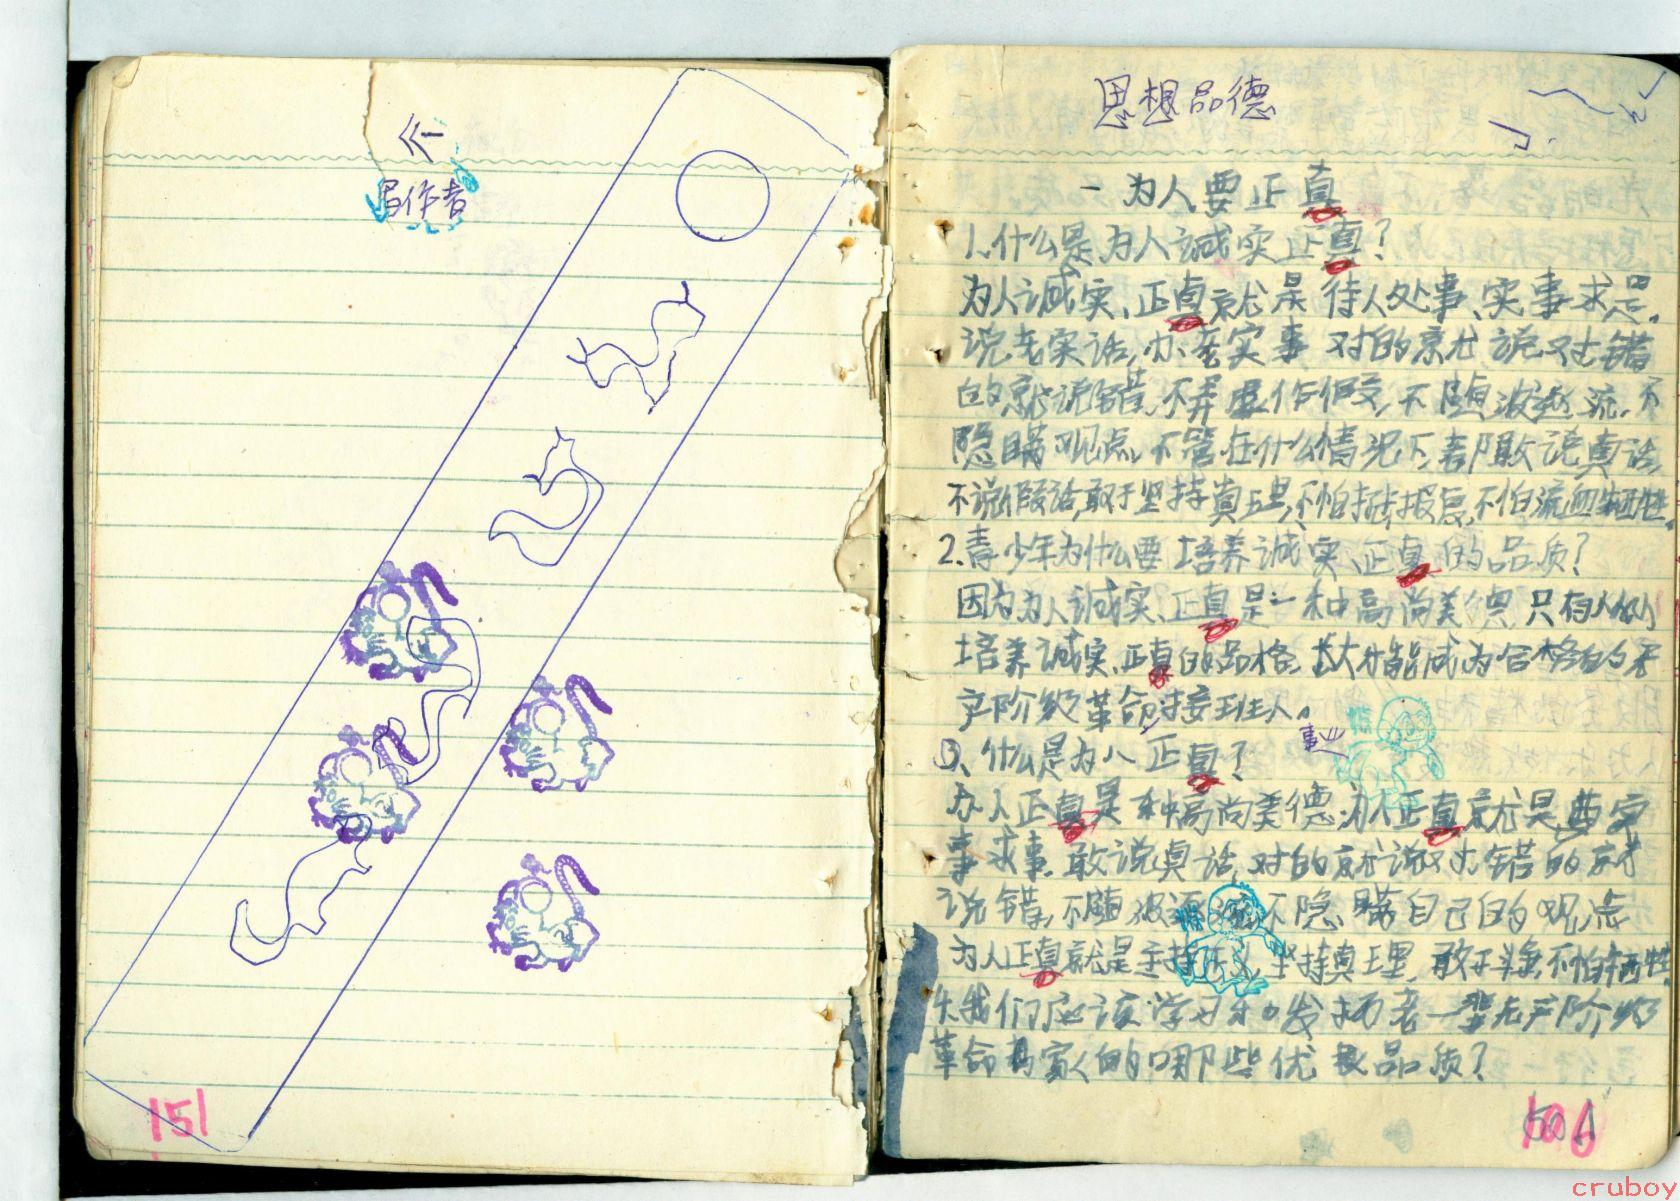 个
留作者
151
思想品德
一为人要正真
1、什么是为人诚实正真?
为人诚实、正真就是待人处事、实事求是。
说老实话,办老实事 对的就说对错
的就说错,不弄虚作假,不随波逐流,不
隐瞒观点,不管在什么情况下,都敢说真话,
不说假话,敢于坚持真理,不怕打击报复,不怕流血牺牲
2.青少年为什么要培养诚实、正真的品质?
因为为人诚实、正真是一种高尚美 只有从小
培养诚实、正真的品格,长大才能成为合格的无
产阶级革命接班人。
事业
3、什么是为人正真?
为人正真是种高尚美德,为人正真就是
事求事,敢说真话,对的就说对,错的就
说错,不随波逐流不隐瞒自己的观点
为人正真就是主持正义 坚持真理,敢于斗争,不怕牺牲
4我们应该学习和发扬老一辈无产阶级
革命家的哪些优良品质?
cruboy